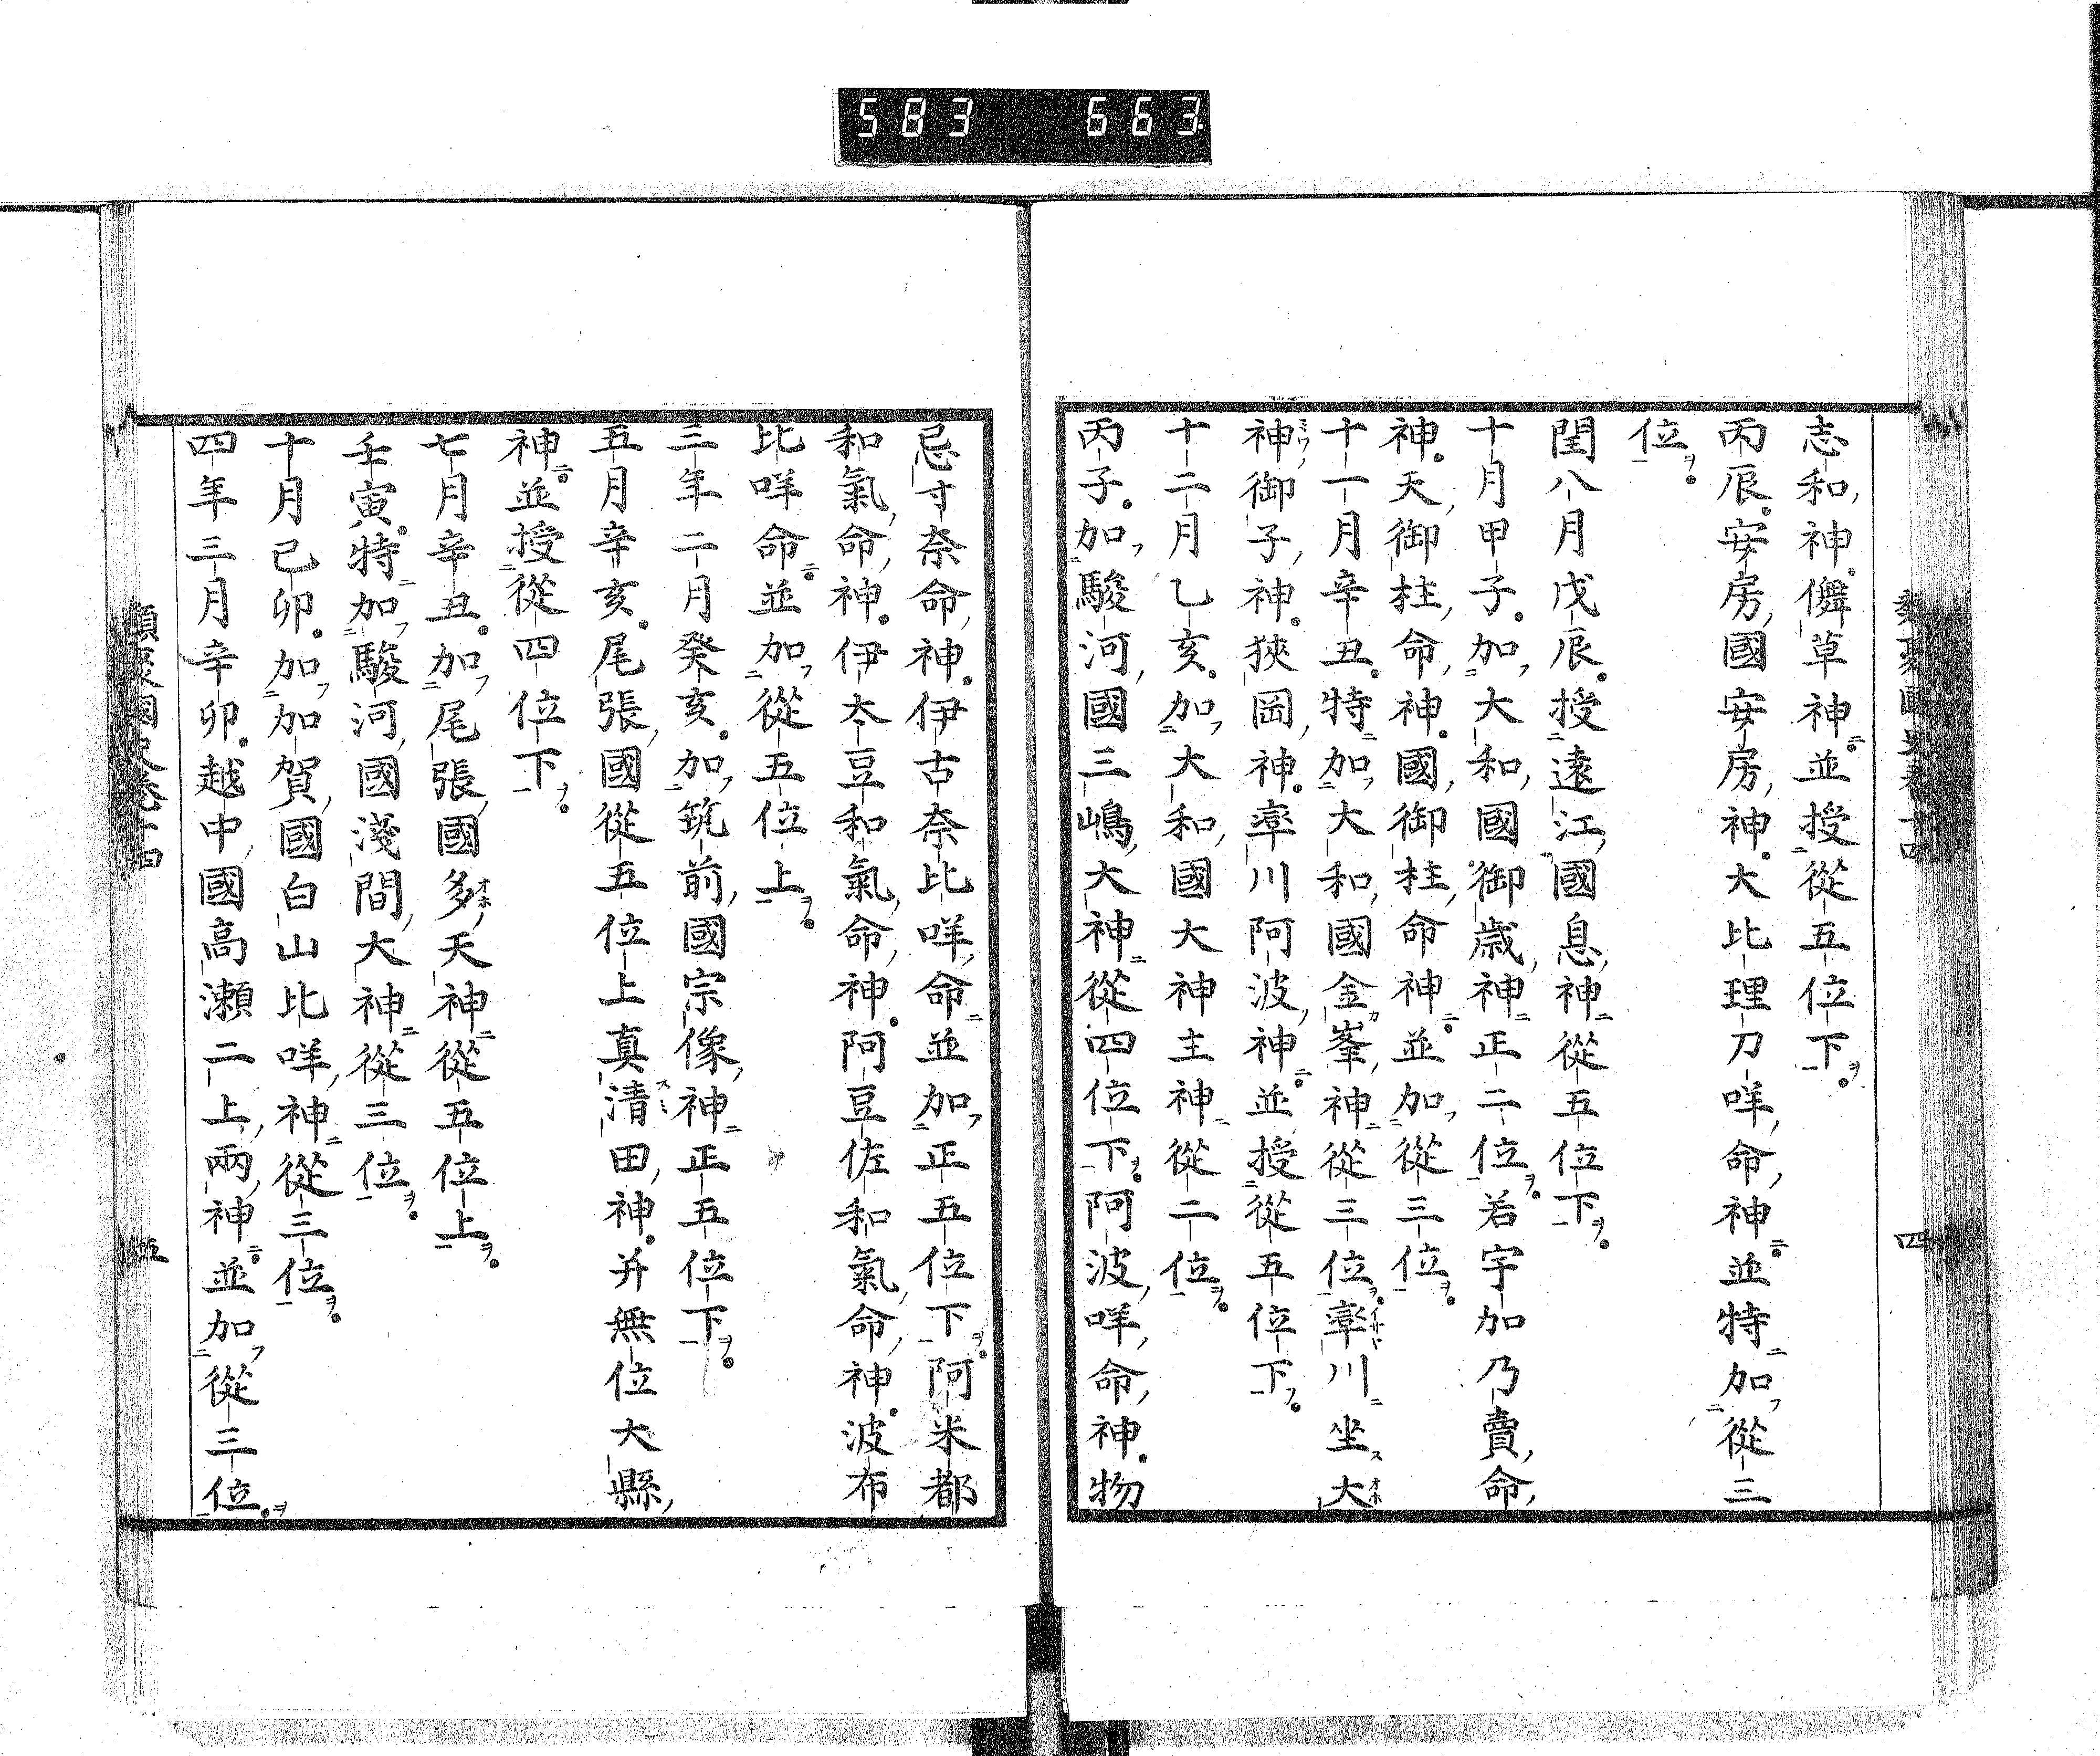 583 663
類聚國史卷十四 四
志和神儛草神並授從五位下
丙辰安房國安房神大比理刀咩命神並特加從三
位
閏八月戊辰授遠江國息神從五位下
十月甲子加大和國御歲神正二位若宇加乃賣命
神天御柱命神國御柱命神並加從三位
十一月辛丑特加大和國金峯神從三位率川坐大
神御子神狹岡神率川阿波神並授從五位下
十二月乙亥加大和國大神主神從二位
丙子加駿河國三嶋大神從四位下阿波咩命神物
忌寸奈命神伊古奈比咩命並加正五位下阿米都
和氣命神伊太豆和氣命神阿豆佐和氣命神波布
比咩命並加從五位上
三年二月癸亥加筑前國宗像神正五位下
五月辛亥尾張國從五位上真清田神并無位大縣
神並授從四位下
七月辛丑加尾張國多天神從五位上
壬寅特加駿河國淺間大神從三位
十月己卯加加賀國白山比咩神從三位
四年三月辛卯越中國高瀬二上兩神並加從三位
類聚國史卷十四 五